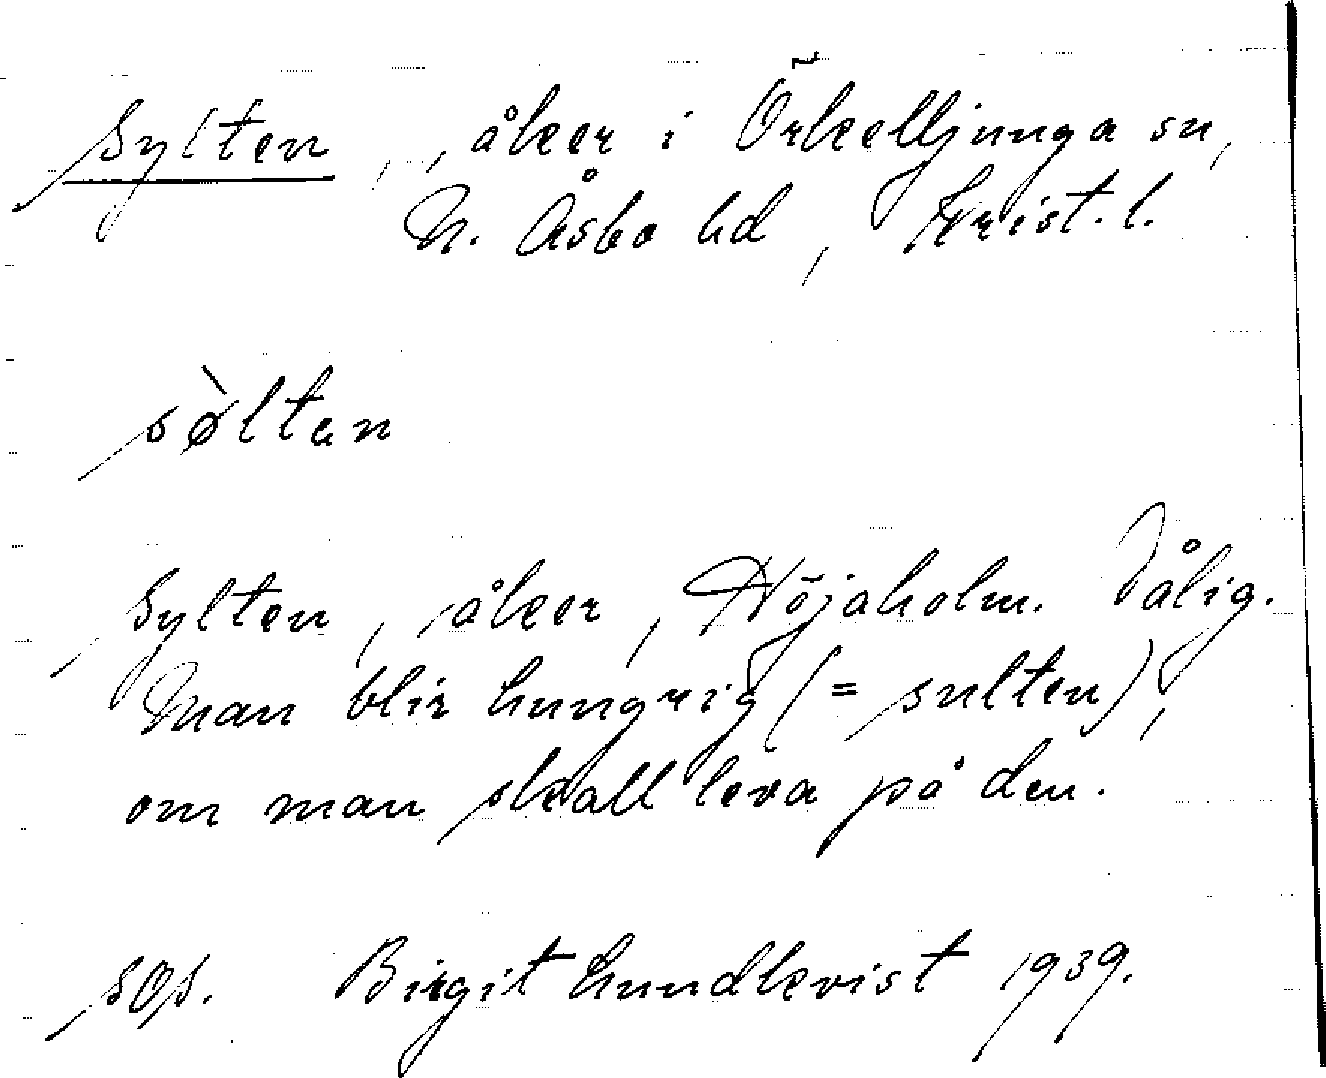 Sylten, , åker i Örkelljunga sn,
N. Åsbo hd, Krist. l.
sø̀ltan
Sylten, åker, Höjaholm. Dålig.
Man blir hungrig (= sulten),
om man skall leva på den.
sOs. Birgit Lundkvist 1939.